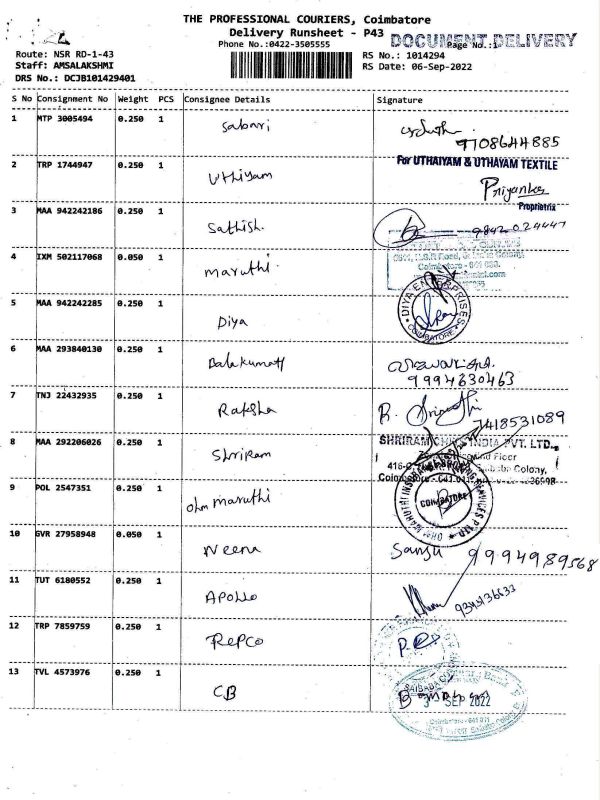 THE PROFESSIONAL COURIERS, Coimbatore
Delivery Runsheet - P43
DOCUMENT DELIVERY
Phone No.:0422-3505555
Page No.:1
Route: NSR RD-1-43
RS No.: 1014294
Staff: AMSALAKSHMI
RS Date: 06-Sep-2022
DRS No.: DCJB101429401
S No Consignment No Weight PCS Consignee Details Signature
1 MTP 3005494 0.250 1 Sabari
9708644885
2 TRP 1744947 0.250 1 Uthiyam
For UTHAIYAM & UTHAYAM TEXTILE
Priyanka
Proprietrix
3 MAA 942242186 0.250 1 Sathish.
9842024447
4 IXM 502117068 0.050 1 Maruthi
5 MAA 942242285 0.250 1 Diya
DIYA ENTERPRISES
COIMBATORE
6 MAA 293840130 0.250 1
9994630463
7 TNJ 22432935 0.250 1 Raksha
7418531089
8 MAA 292206026 0.250 1 Shriram
SHRIRAM INDIA PVT. LTD.,
Floor
Colony,
9 POL 2547351 0.250 1 Ohm Maruthi
COIMBATORE
10 GVR 27958948 0.050 1 Neena
Sanju 9994989568
11 TUT 6180552 0.250 1 APOLLO
12 TRP 7859759 0.250 1 REPCO
13 TVL 4573976 0.250 1 CB
SAIBABA COLONY
SEP 2022